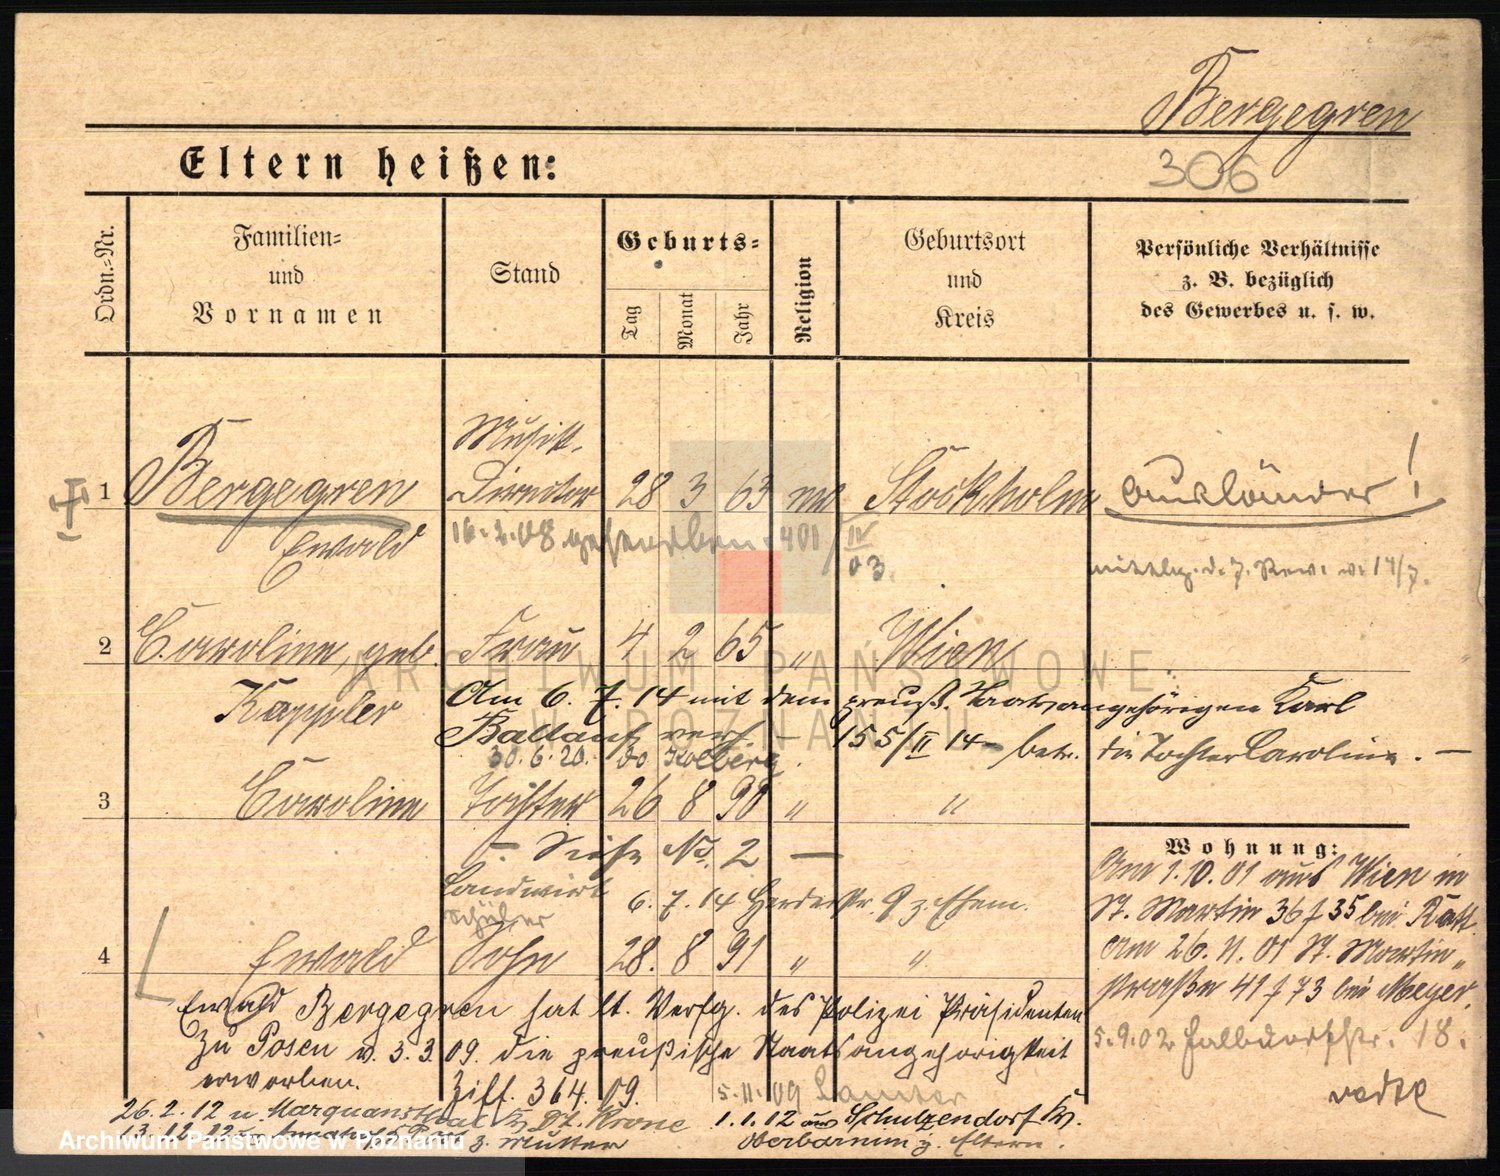 Bergegren
306
Eltern heißen:
Ordn.-Nr.
Familien- und Vornamen
Stand
Geburts-
Tag
Monat
Jahr
Religion
Geburtsort und Kreis
Persönliche Verhältnisse z. B. bezüglich des Gewerbes u. s. w.
Musik-
1 Bergegren Director 28 3 63 Stockholm Ausländer!
Ewald 16.2.08 gestorben 401/IV 03.
v. 14/7.
2 Caroline, geb. Frau 4 2 65 " Wien
Kappler Am 6. 7. 14 mit dem preuß. Staatsangehörigen Karl
Ballauf verh. — 155/II 14 — betr. die Tochter Caroline. —
30.6.20. Kolberg
3 Caroline Tochter 26 8 90 " "
— Siehe No. 2 —
Landwirt 6. 7. 14 Herderstr. 9 z. Ehem.
Schüler
4 Ewald Sohn 28. 8 91 " "
Ewald Bergegren hat lt. Verfg. des Polizei Präsidenten
zu Posen v. 3. 3. 09. die preußische Staatsangehörigkeit
erworben. Ziff. 364. 09. 5.11.09
26. 2. 12 Dt. Krone
1. 1. 12 aus Schulzendorf Kr.
z. Mutter
Oberbarnim z. Eltern.
Wohnung:
Am 1.10.01 aus Wien in
St. Martin 36 f 35 bei Ratt.
Am 26. 11. 01 St. Martin-
straße 41 f 73 bei Meyer.
5.9.02 18.
ARCHIWUM PAŃSTWOWE
W POZNANIU
Archiwum Państwowe w Poznaniu